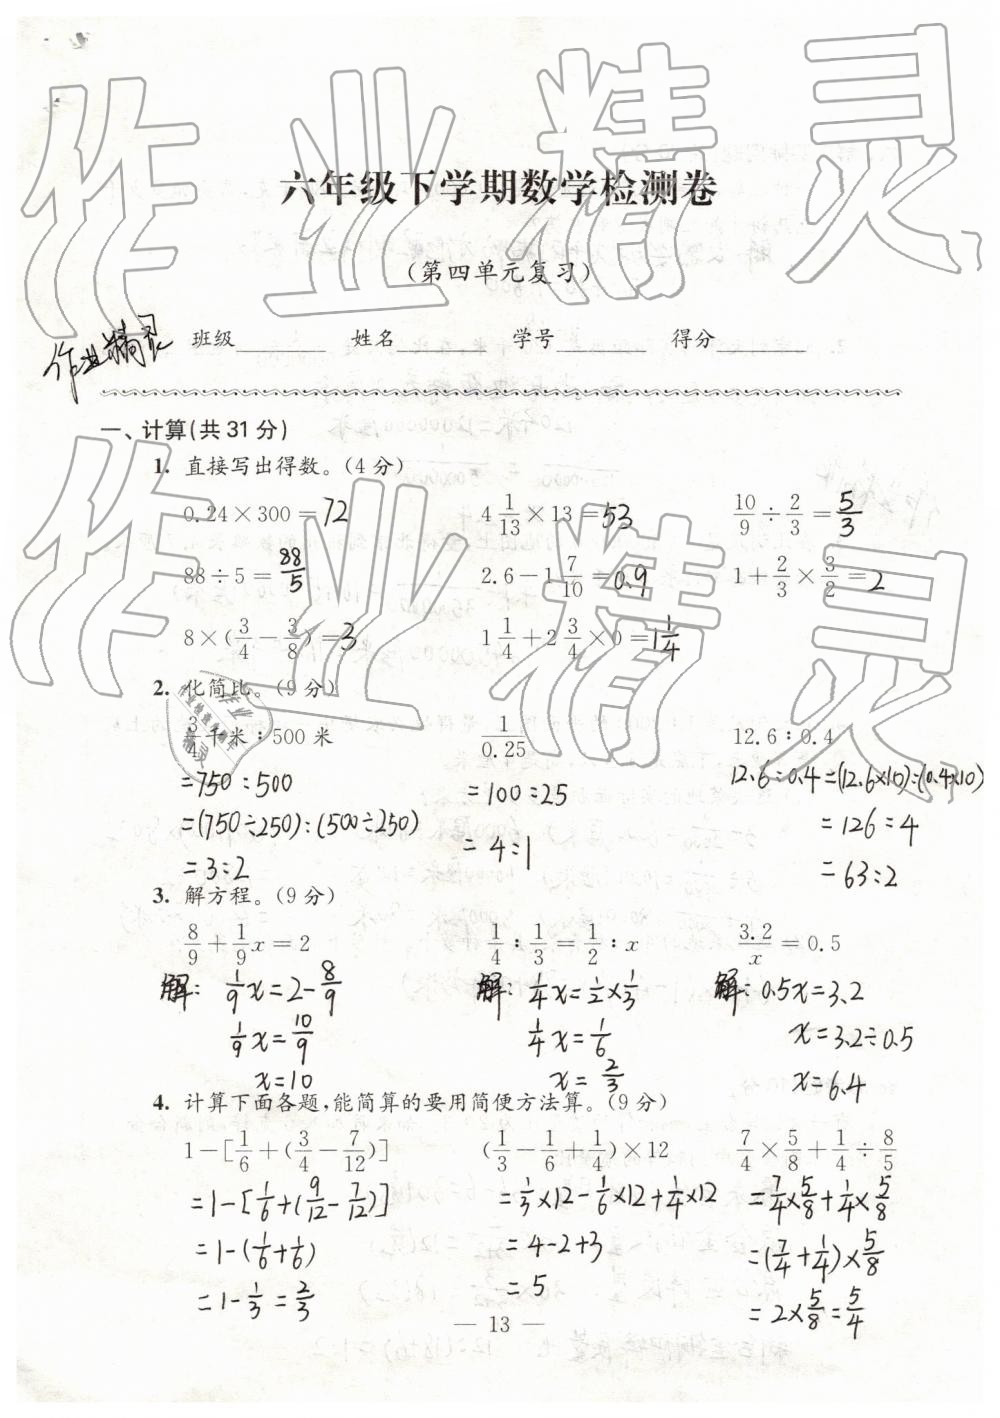 作业精灵
六年级下学期数学检测卷
(第四单元复习)
作业精灵 班级 姓名 学号 得分
一、计算(共31分)
1. 直接写出得数。(4分)
0.24×300=72 4 1/13×13=53 10/9÷2/3=5/3
88÷5=88/5 2.6-1 7/10=0.9 1+2/3×3/2=2
8×(3/4-3/8)=3 1 1/4+2 3/4×0=1 1/4
2. 化简比。(9分)
3/4千米:500米 1/0.25 12.6:0.4
=750:500 =100:25 12.6:0.4=(12.6×10):(0.4×10)
=(750÷250):(500÷250) =4:1 =126:4
=3:2 =63:2
3. 解方程。(9分)
8/9+1/9x=2 1/4:1/3=1/2:x 3.2/x=0.5
解: 1/9x=2-8/9 解: 1/4x=1/2×1/3 解: 0.5x=3.2
1/9x=10/9 1/4x=1/6 x=3.2÷0.5
x=10 x=2/3 x=6.4
4. 计算下面各题,能简算的要用简便方法算。(9分)
1-[1/6+(3/4-7/12)] (1/3-1/6+1/4)×12 7/4×5/8+1/4÷8/5
=1-[1/6+(9/12-7/12)] =1/3×12-1/6×12+1/4×12 =7/4×5/8+1/4×5/8
=1-(1/6+1/6) =4-2+3 =(7/4+1/4)×5/8
=1-1/3=2/3 =5 =2×5/8=5/4
— 13 —
作业精灵